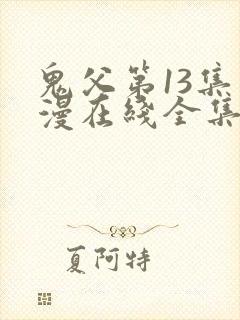 鬼父第13集
漫在綫全集
夏阿特